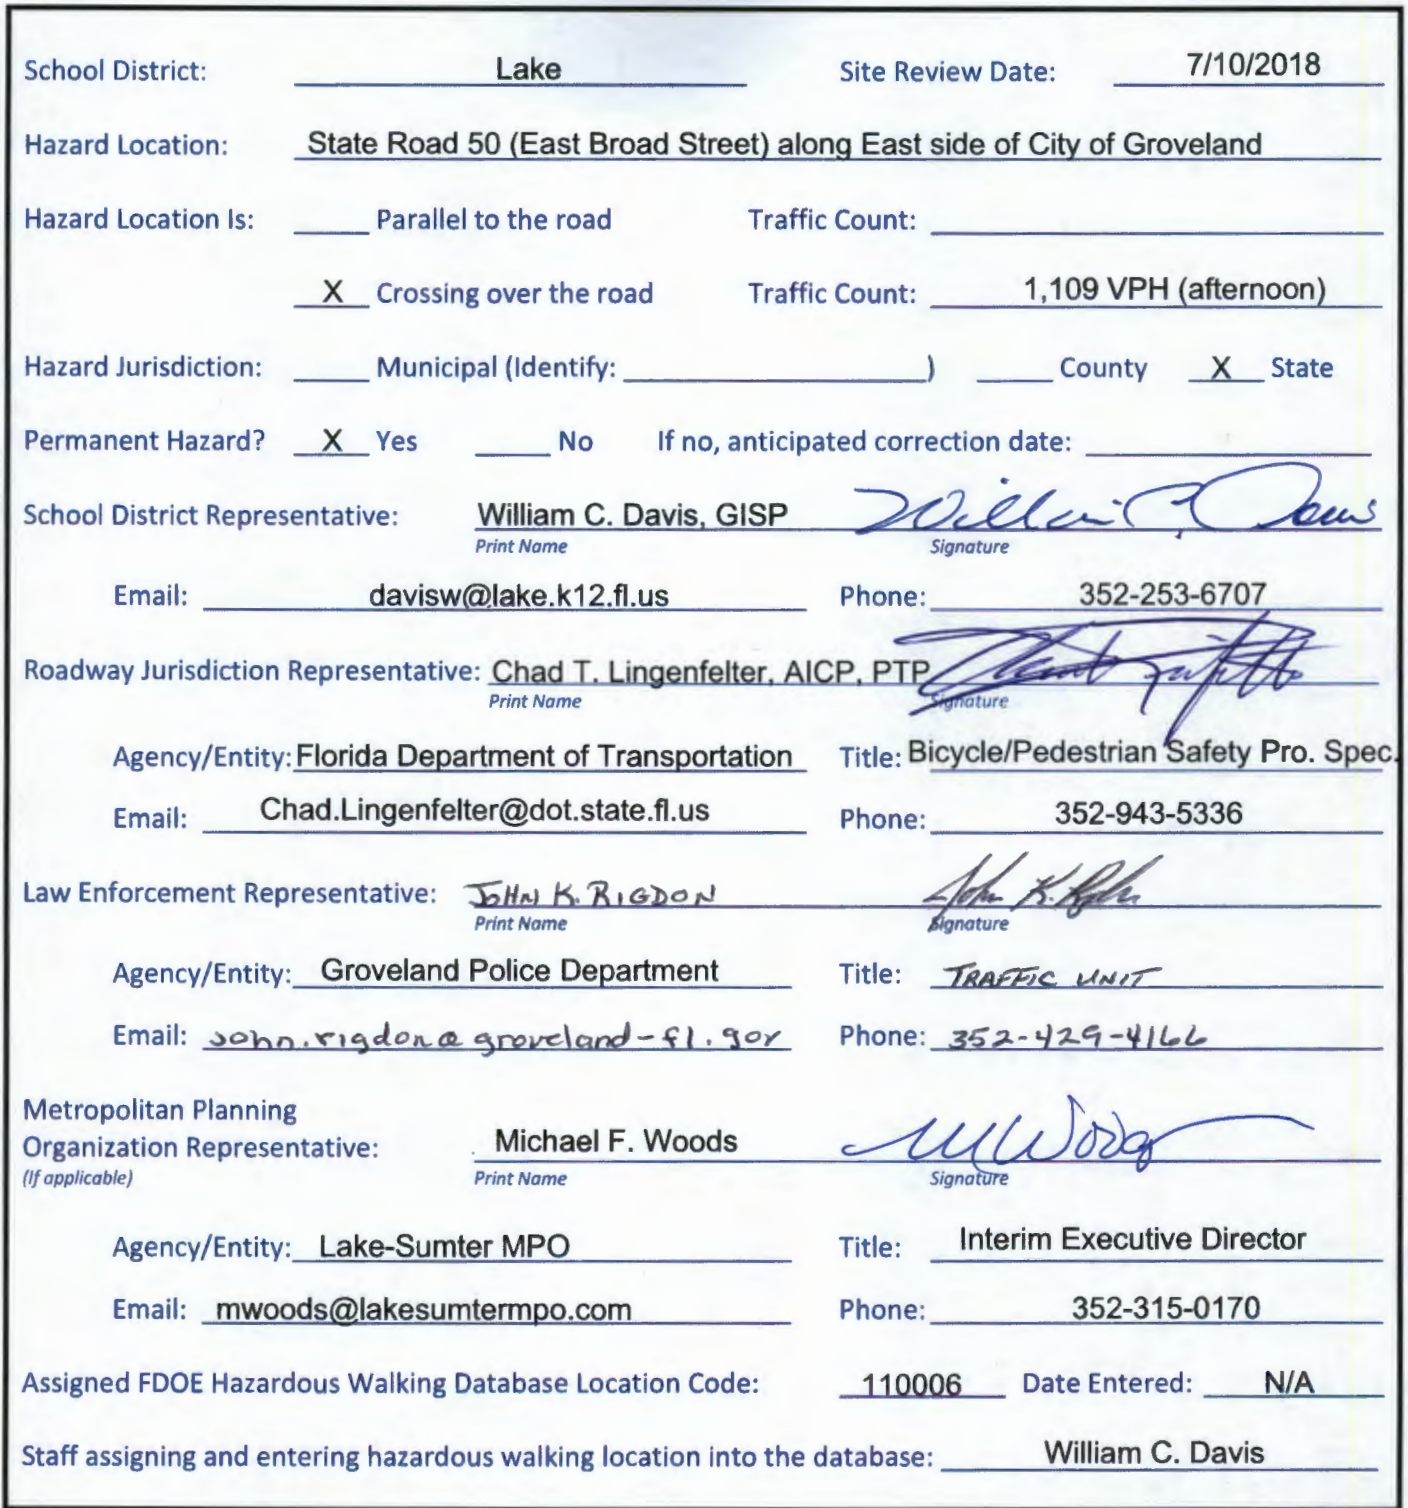 School District: Lake Site Review Date: 7/10/2018
Hazard Location: State Road 50 (East Broad Street) along East side of City of Groveland
Hazard Location Is: Parallel to the road Traffic Count:
X Crossing over the road Traffic Count: 1,109 VPH (afternoon)
Hazard Jurisdiction: Municipal (Identify: ) County X State
Permanent Hazard? X Yes No If no, anticipated correction date:
School District Representative: William C. Davis, GISP William C. Davis
Print Name Signature
Email: davisw@lake.k12.fl.us Phone: 352-253-6707
Roadway Jurisdiction Representative: Chad T. Lingenfelter, AICP, PTP
Print Name Signature
Agency/Entity: Florida Department of Transportation Title: Bicycle/Pedestrian Safety Pro. Spec.
Email: Chad.Lingenfelter@dot.state.fl.us Phone: 352-943-5336
Law Enforcement Representative: JOHN K. RIGDON
Print Name Signature
Agency/Entity: Groveland Police Department Title: TRAFFIC UNIT
Email: john.rigdon@groveland-fl.gov Phone: 352-429-4166
Metropolitan Planning
Organization Representative: Michael F. Woods MWoods
(If applicable) Print Name Signature
Agency/Entity: Lake-Sumter MPO Title: Interim Executive Director
Email: mwoods@lakesumtermpo.com Phone: 352-315-0170
Assigned FDOE Hazardous Walking Database Location Code: 110006 Date Entered: N/A
Staff assigning and entering hazardous walking location into the database: William C. Davis